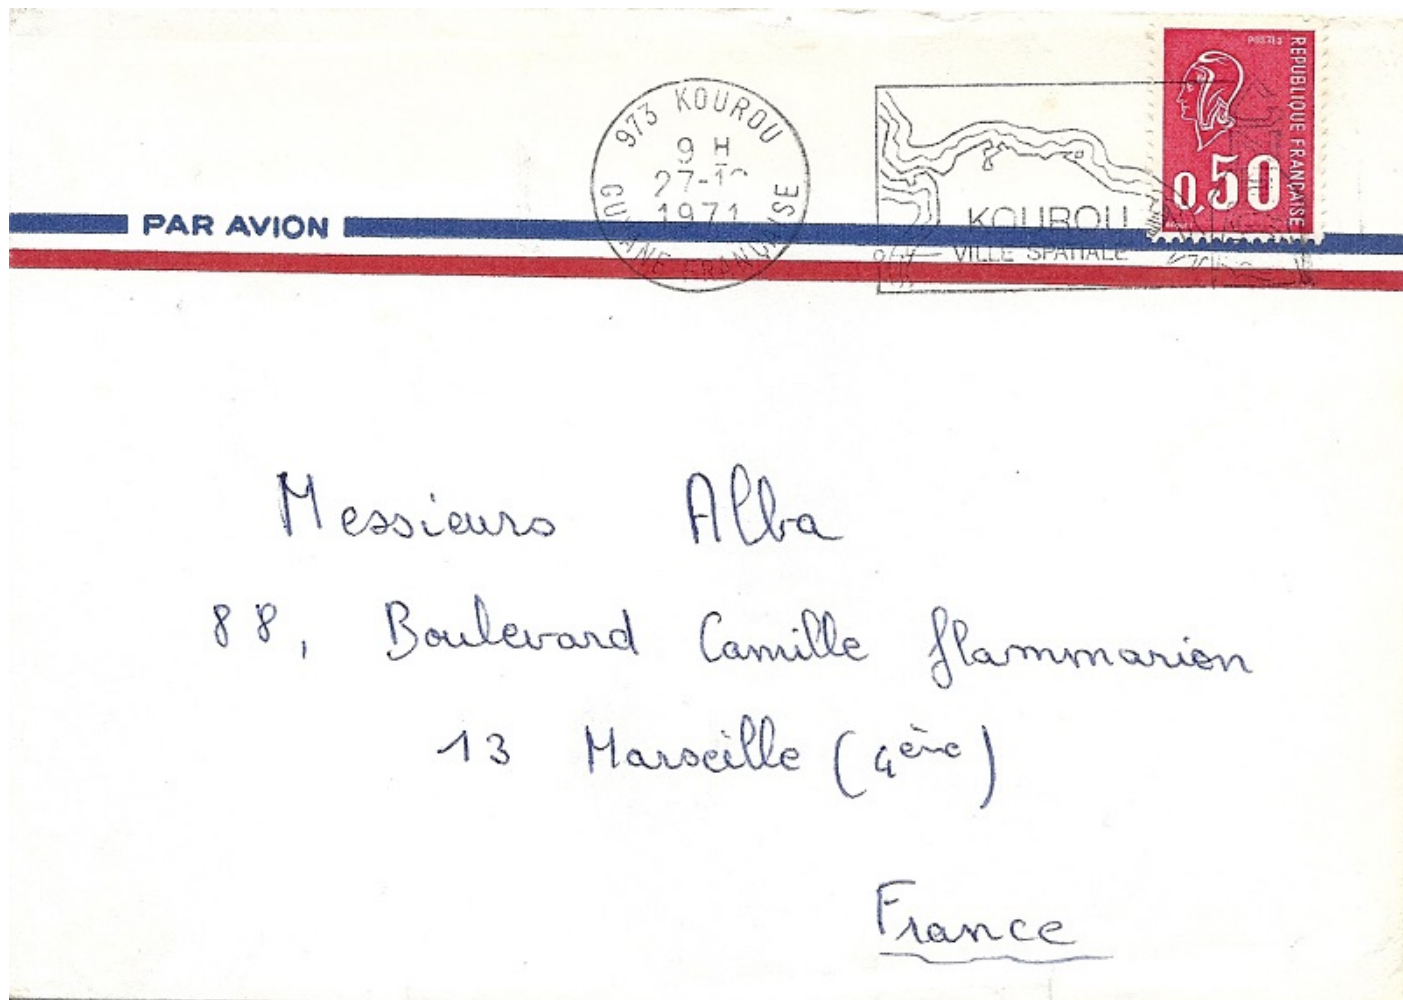 973 KOUROU
9 H
27-1
1971
GUYANE FRANÇAISE
KOUROU
VILLE SPATIALE
POSTES
REPUBLIQUE FRANÇAISE
0,50
PAR AVION
Messieurs Alba
88, Boulevard Camille Flammarion
13 Marseille (4ème)
France